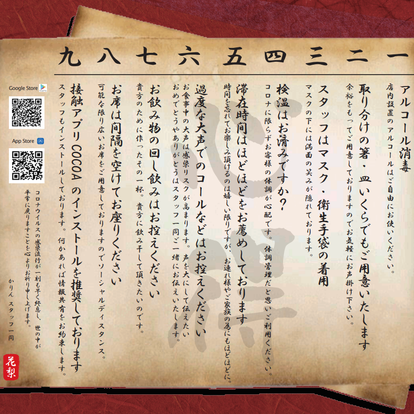 一
アルコール消毒
店内設置のアルコールはご自由にお使いください。
二
取り分けの箸・皿いくらでもご用意いたします
余裕をもってご用意しておりますのでお気軽にお声掛け下さい。
三
スタッフはマスク・衛生手袋の着用
マスクの下には満面の笑みが隠れております。
四
検温はお済みですか？
コロナに限らずお客様の体調が心配です。体調管理だと思いご利用ください。
五
滞在時間はほどほどをお薦めしております
時間を忘れてお楽しみ頂けるのは嬉しい限りですが、お連れ様やご家族の為にもほどほどに。
六
過度な大声でのコールなどはお控えください
お食事中の大声は感染リスクが高まります。声を大にして伝えたい
おめでとうやありがとうはスタッフ一同ご一緒にお伝えいたします。
七
お飲み物の回し飲みはお控えください
貴方のために作った一杯。貴方に飲み干して頂きたいのです。
八
お席は間隔を空けてお座りください
可能な限り広いお席をご用意しておりますのでソーシャルディスタンス。
九
接触アプリCOCOAのインストールを推奨しております
スタッフもインストールしております。何かあれば情報共有をお約束します。
Google Store
App Store
コロナウイルスの感染流行が一刻も早く終息し、世の中が
平常に戻りますことを心よりお祈り申し上げます。
かりんスタッフ一同
花梨
心得